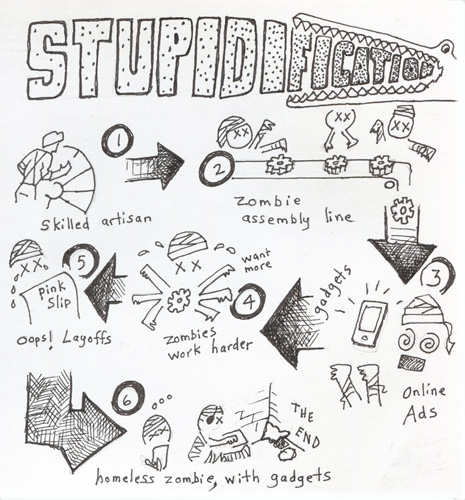 STUPIDIFICATION
1
Skilled artisan
2
Zombie
assembly line
3
gadgets
Online
Ads
4
want
more
zombies
work harder
5
Pink
Slip
Oops! Layoffs
6
THE
END
homeless zombie, with gadgets